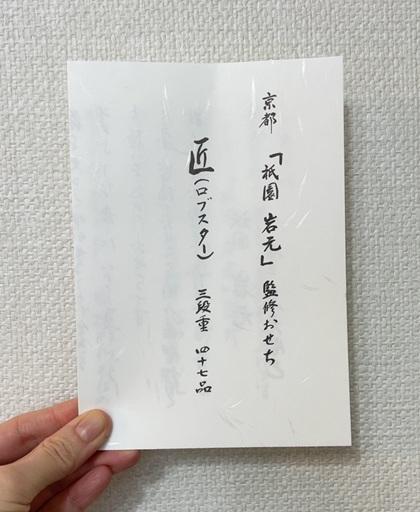 京都 「祇園 岩元」監修おせち
匠(ロブスター) 三段重 四十七品